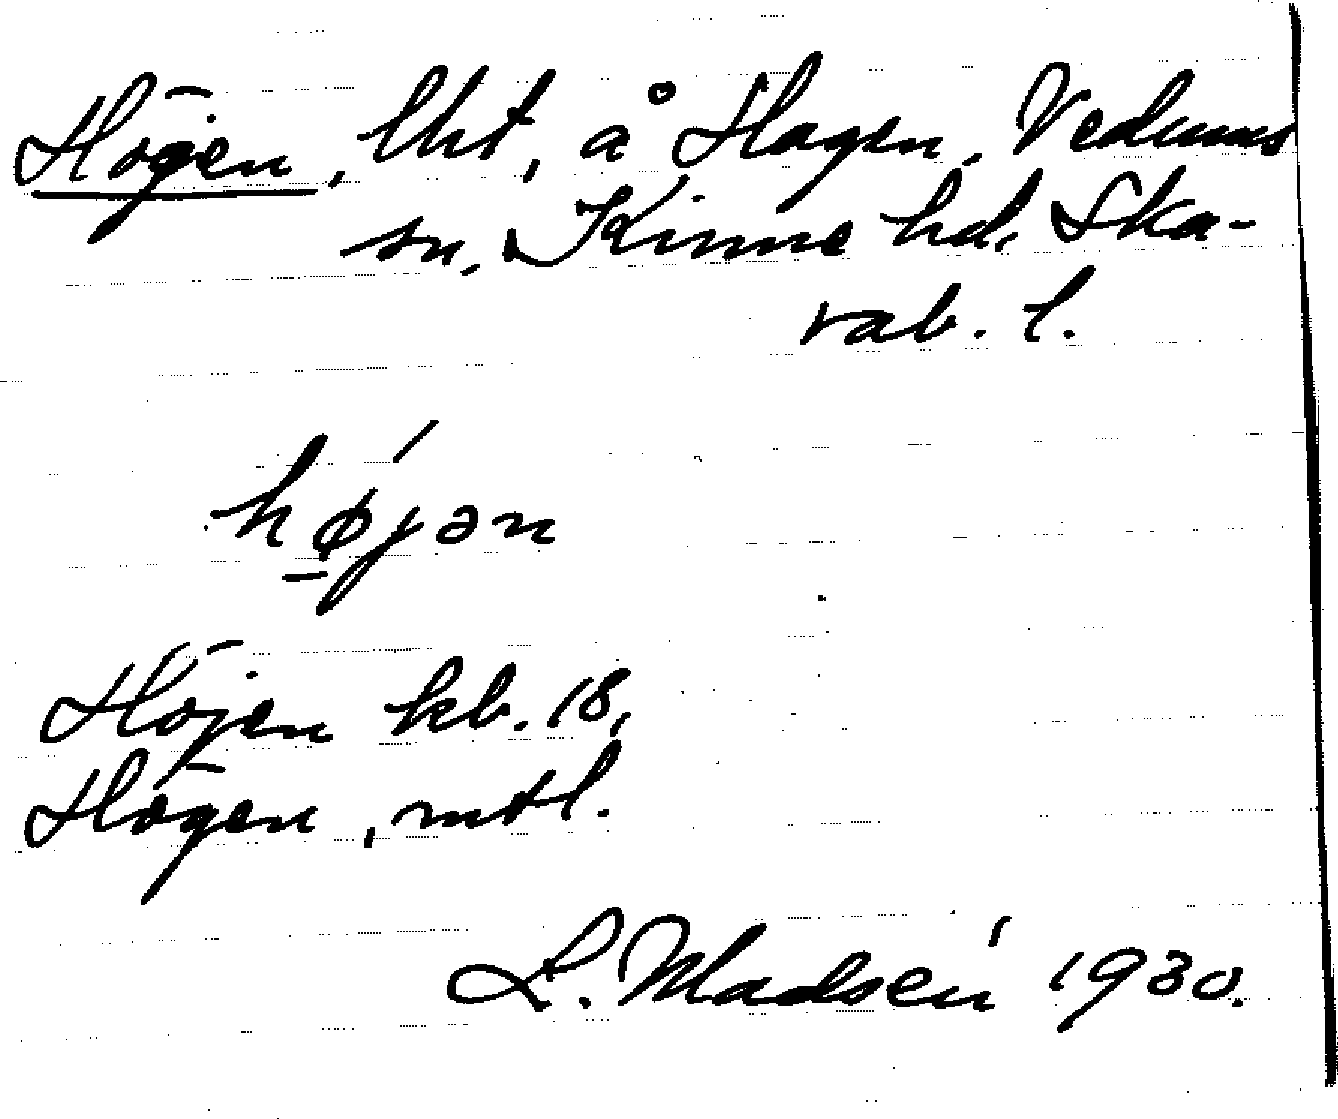 Högen, lht, å Hagen, Vedums
sn, Kinne hd, Ska-
rab. l.
højən
Höjen kb. 18,
Högen, mtl.
L. Madsén 1930.